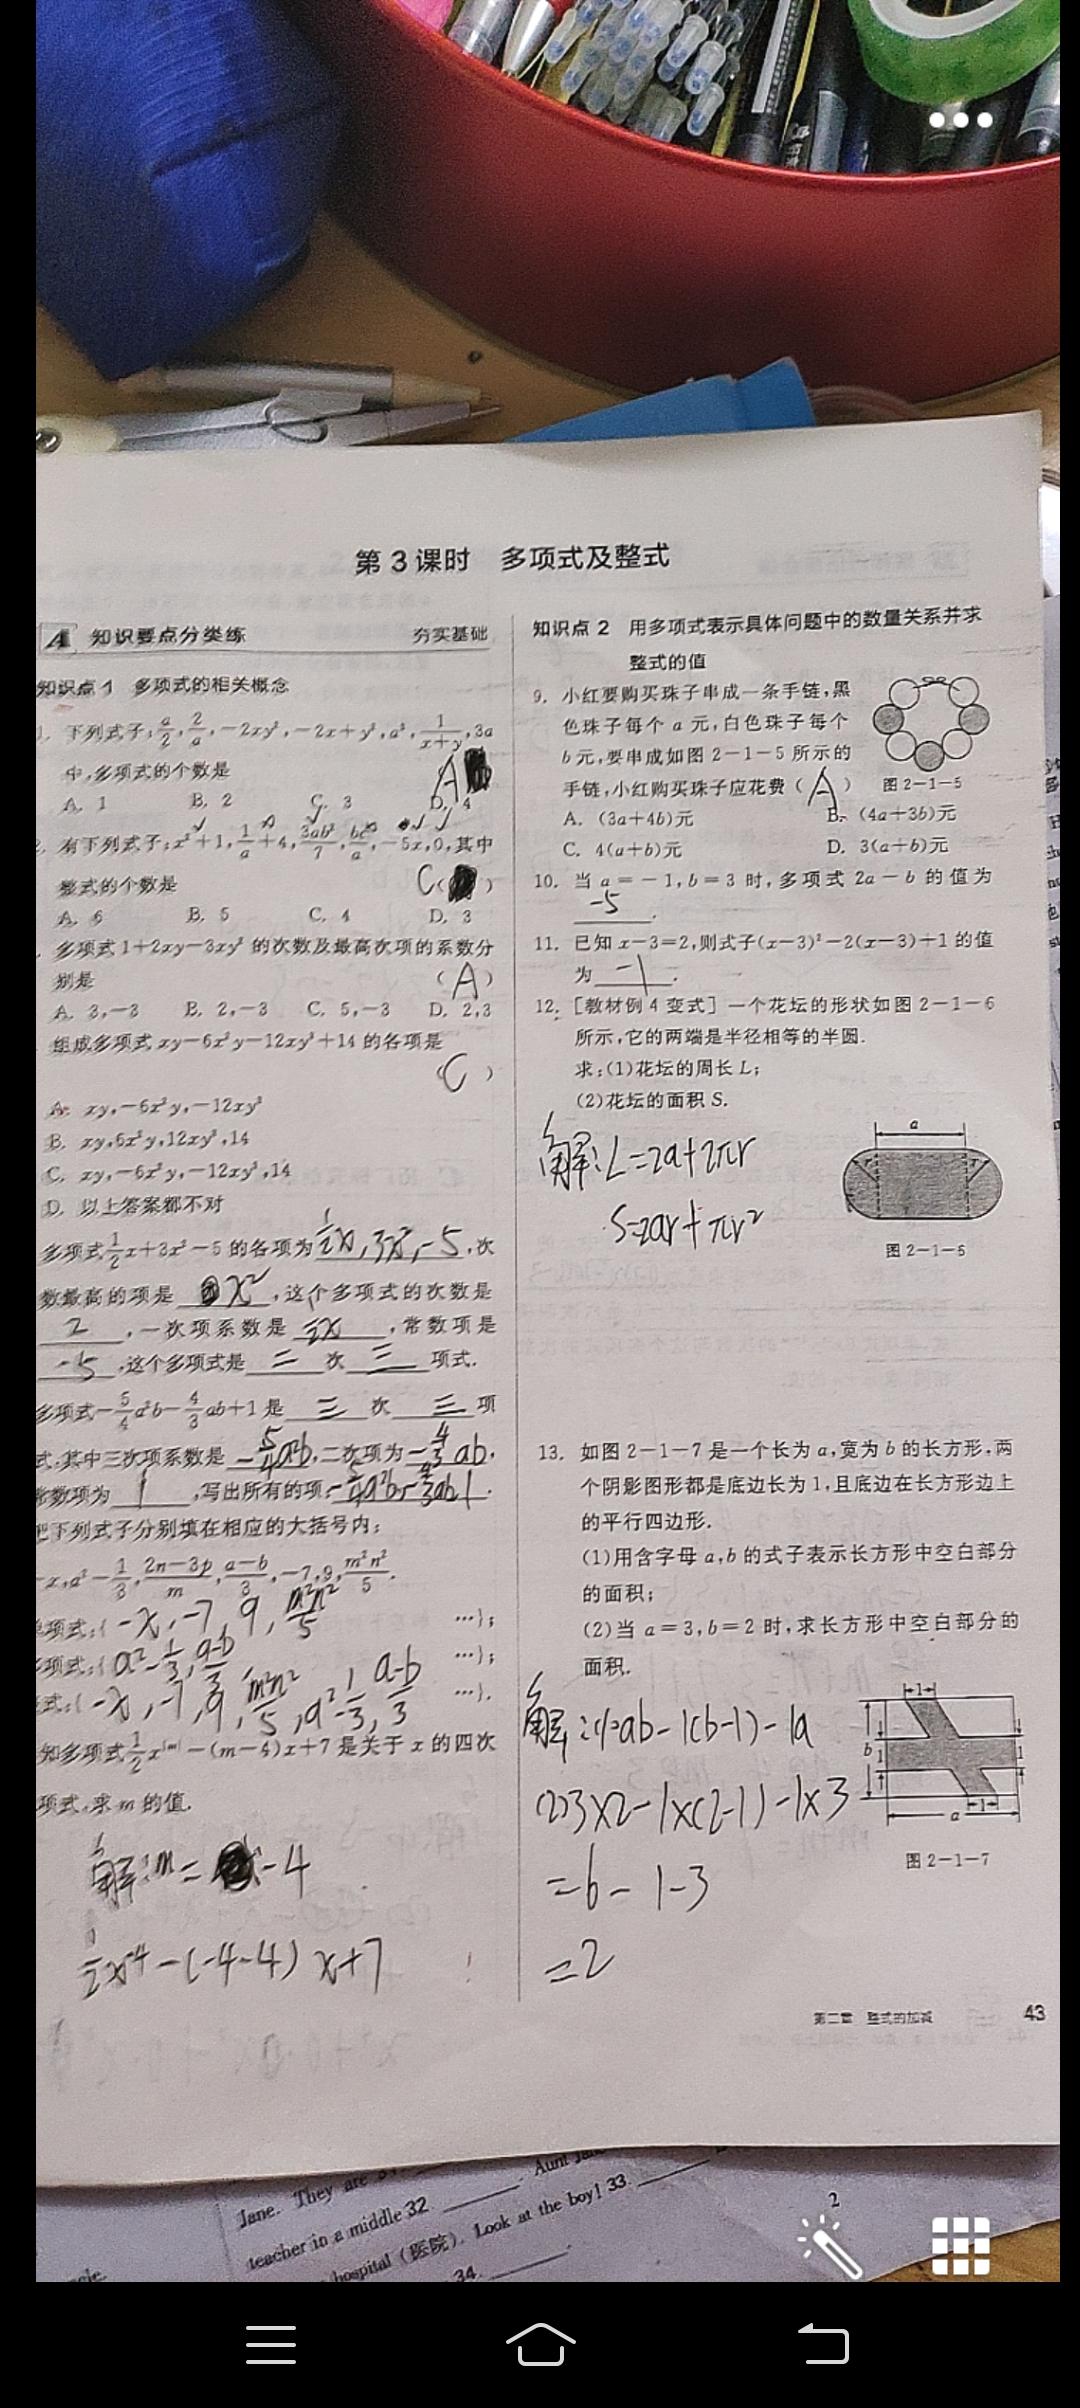 第3课时 多项式及整式
A 知识要点分类练 夯实基础
知识点1 多项式的相关概念
下列式子:a/2,2/a,-2xy²,-2x+y²,a³,1/(x+y),3a
中,多项式的个数是 A
A. 1 B. 2 C. 3 D. 4
有下列式子:x²+1,1/a+4,3ab²/7,bc/a,-5x,0,其中
整式的个数是 C( )
A. 6 B. 5 C. 4 D. 3
多项式1+2xy-3xy²的次数及最高次项的系数分
别是 (A)
A. 3,-3 B. 2,-3 C. 5,-3 D. 2,3
组成多项式xy-6x²y-12xy²+14的各项是
(C)
A. xy,-6x²y,-12xy²
B. xy,6x²y,12xy²,14
C. xy,-6x²y,-12xy²,14
D. 以上答案都不对
多项式1/2x+3x²-5的各项为1/2x,3x²,-5,次
数最高的项是 x²,这个多项式的次数是
2,一次项系数是 1/2x,常数项是
-5,这个多项式是 二 次 三 项式.
多项式-5/4a²b-4/3ab+1是 三 次 三 项
式,其中三次项系数是 -5/4a²b,二次项为-4/3ab,
常数项为 1,写出所有的项:-5/4a²b-4/3ab 1.
把下列式子分别填在相应的大括号内:
-x,a²-1/3,(2n-3p)/m,(a-b)/3,-7,9,m²n²/5.
项式:{-x,-7,9,m²n²/5 …};
项式:{a²-1/3,(a-b)/3 …};
式:{-x,-7,9,m²n²/5,a²-1/3,(a-b)/3 …}.
知多项式1/2x|m|-(m-4)x+7是关于x的四次
项式,求m的值.
解:m=-4
1/2x⁴-(-4-4)x+7
知识点2 用多项式表示具体问题中的数量关系并求
整式的值
9. 小红要购买珠子串成一条手链,黑
色珠子每个a元,白色珠子每个
b元,要串成如图2-1-5所示的
手链,小红购买珠子应花费(A)
图2-1-5
A. (3a+4b)元 B. (4a+3b)元
C. 4(a+b)元 D. 3(a+b)元
10. 当a=-1,b=3时,多项式2a-b的值为
-5.
11. 已知x-3=2,则式子(x-3)²-2(x-3)+1的值
为 -1.
12. [教材例4变式]一个花坛的形状如图2-1-6
所示,它的两端是半径相等的半圆.
求:(1)花坛的周长L;
(2)花坛的面积S.
解:L=2a+2πr
S=2ar+πr²
a
r r
图2-1-6
13. 如图2-1-7是一个长为a,宽为b的长方形,两
个阴影图形都是底边长为1,且底边在长方形边上
的平行四边形.
(1)用含字母a,b的式子表示长方形中空白部分
的面积;
(2)当a=3,b=2时,求长方形中空白部分的
面积.
解:(1)=ab-1(b-1)-1a
(2)3×2-1×(2-1)-1×3
=6-1-3
=2
1
b 1 1
1
a
图2-1-7
第二章 整式的加减 43
Jane. They are
Aunt Jane
teacher in a middle 32.
hospital(医院). Look at the boy! 33.
34.
2